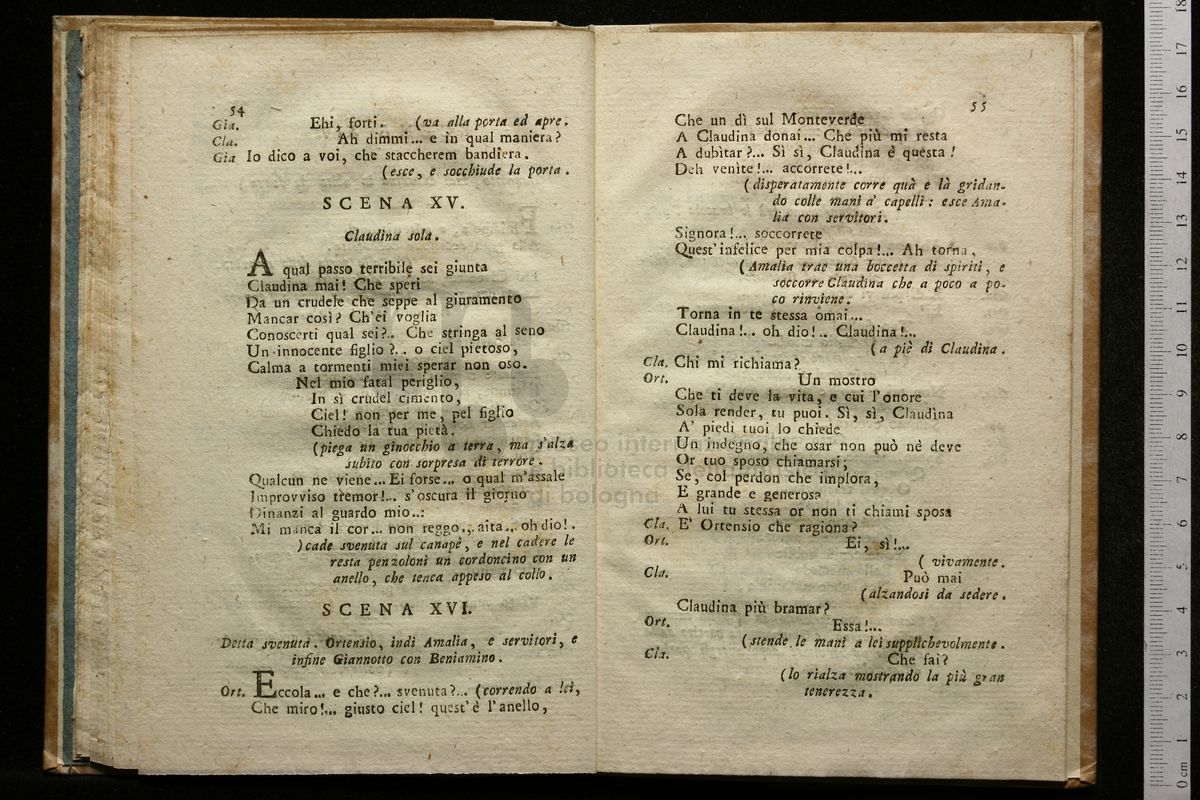 54
Gia. Ehi, forti. (va alla porta ed apre.
Cla. Ah dimmi... e in qual maniera?
Gia Io dico a voi, che staccherem bandiera.
(esce, e socchiude la porta.
SCENA XV.
Claudina sola.
A qual passo terribile sei giunta
Claudina mai! Che speri
Da un crudele che seppe al giuramento
Mancar così? Ch'ei voglia
Conoscerti qual sei?.. Che stringa al seno
Un innocente figlio?.. o ciel pietoso,
Calma a tormenti miei sperar non oso.
Nel mio fatal periglio,
In sì crudel cimento,
Ciel! non per me, pel figlio
Chiedo la tua pietà.
(piega un ginocchio a terra, ma s'alza
subito con sorpresa di terrore.
Qualcun ne viene... Ei forse... o qual m'assale
Improvviso tremor!... s'oscura il giorno
Dinanzi al guardo mio..:
Mi manca il cor... non reggo... aita... oh dio!.
)cade svenuta sul canapè, e nel cadere le
resta penzoloni un cordoncino con un
anello, che tenea appeso al collo.
SCENA XVI.
Detta svenuta. Ortensio, indi Amalia, e servitori, e
infine Giannotto con Beniamino.
Ort. Eccola... e che?... svenuta?... (correndo a lei,
Che miro!... giusto ciel! quest'è l'anello,
55
Che un dì sul Monteverde
A Claudina donai... Che più mi resta
A dubitar?... Sì sì, Claudina è questa!
Deh venite!... accorrete!...
(disperatamente corre quà e là gridan-
do colle mani a' capelli: esce Ama-
lia con servitori.
Signora!... soccorrete
Quest'infelice per mia colpa!... Ah torna,
(Amalia trae una boccetta di spiriti, e
soccorre Claudina che a poco a po-
co rinviene.
Torna in te stessa omai...
Claudina!.. oh dio!.. Claudina!...
(a piè di Claudina.
Cla. Chi mi richiama?
Ort. Un mostro
Che ti deve la vita, e cui l'onore
Sola render, tu puoi. Sì, sì, Claudina
A' piedi tuoi lo chiede
Un indegno, che osar non può nè deve
Or tuo sposo chiamarsi;
Se, col perdon che implora,
E grande e generosa
A lui tu stessa or non ti chiami sposa
Cla. E' Ortensio che ragiona?
Ort. Ei, sì!...
(vivamente.
Cla. Può mai
(alzandosi da sedere.
Claudina più bramar?
Ort. Essa!...
(stende le mani a lei supplichevolmente.
Cla. Che fai?
(lo rialza mostrando la più gran
tenerezza.
museo
biblioteca
di bologna
0 cm 1 2 3 4 5 6 7 8 9 10 11 12 13 14 15 16 17 18